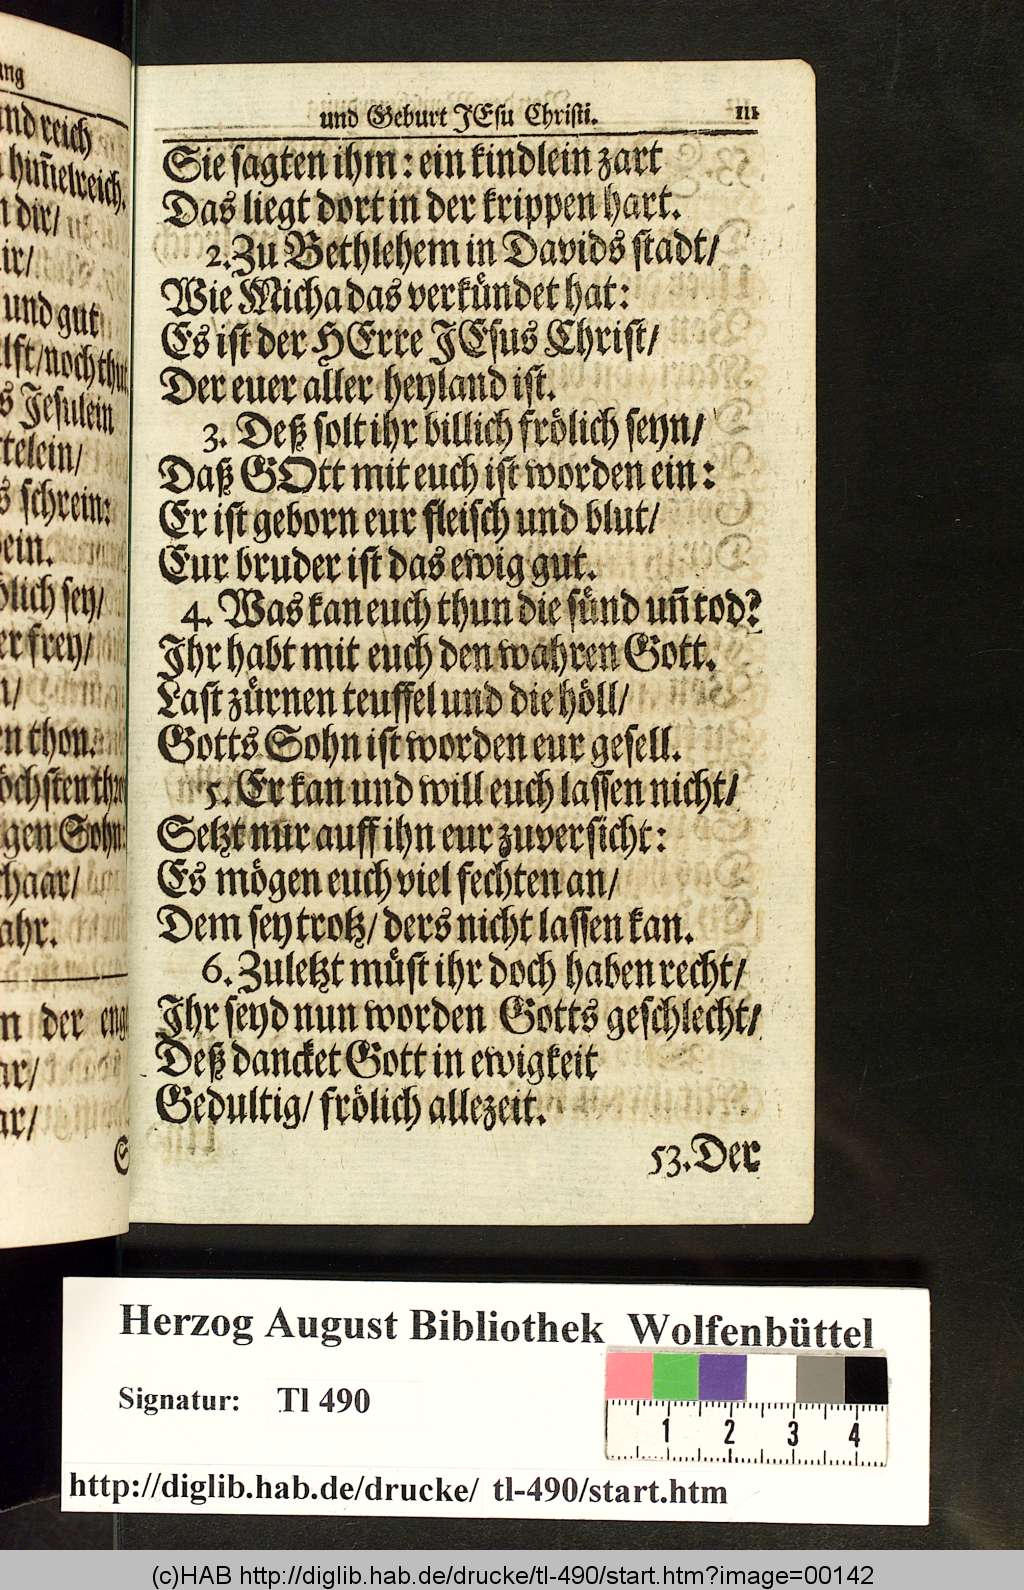 ung
und reich
him̃elreich.
dir/
ir/
und gut
noch thut
s Jesulein
ttelein/
s schrein:
ein.
lich sey/
er frey/
n/
en thon.
gen Sohn:
haar/
ahr.
der
ar/
ar/
S
und Geburt JEsu Christi. 111
Sie sagten ihm: ein kindlein zart
Das liegt dort in der krippen hart.
2. Zu Bethlehem in Davids stadt/
Wie Micha das verkündet hat:
Es ist der HErre JEsus Christ/
Der euer aller heyland ist.
3. Deß solt ihr billich frölich seyn/
Daß GOtt mit euch ist worden ein:
Er ist geborn eur fleisch und blut/
Eur bruder ist das ewig gut.
4. Was kan euch thun die sünd uñ tod?
Ihr habt mit euch den wahren Gott.
Last zürnen teuffel und die höll/
Gotts Sohn ist worden eur gesell.
5. Er kan und will euch lassen nicht/
Setzt nur auff ihn eur zuversicht:
Es mögen euch viel fechten an/
Dem sey trotz/ ders nicht lassen kan.
6. Zuletzt müst ihr doch haben recht/
Ihr seyd nun worden Gotts geschlecht/
Deß dancket Gott in ewigkeit
Gedultig/ frölich allezeit.
53. Der
Herzog August Bibliothek Wolfenbüttel
Signatur: Tl 490
1 2 3 4
http://diglib.hab.de/drucke/ tl-490/start.htm
(c)HAB http://diglib.hab.de/drucke/tl-490/start.htm?image=00142